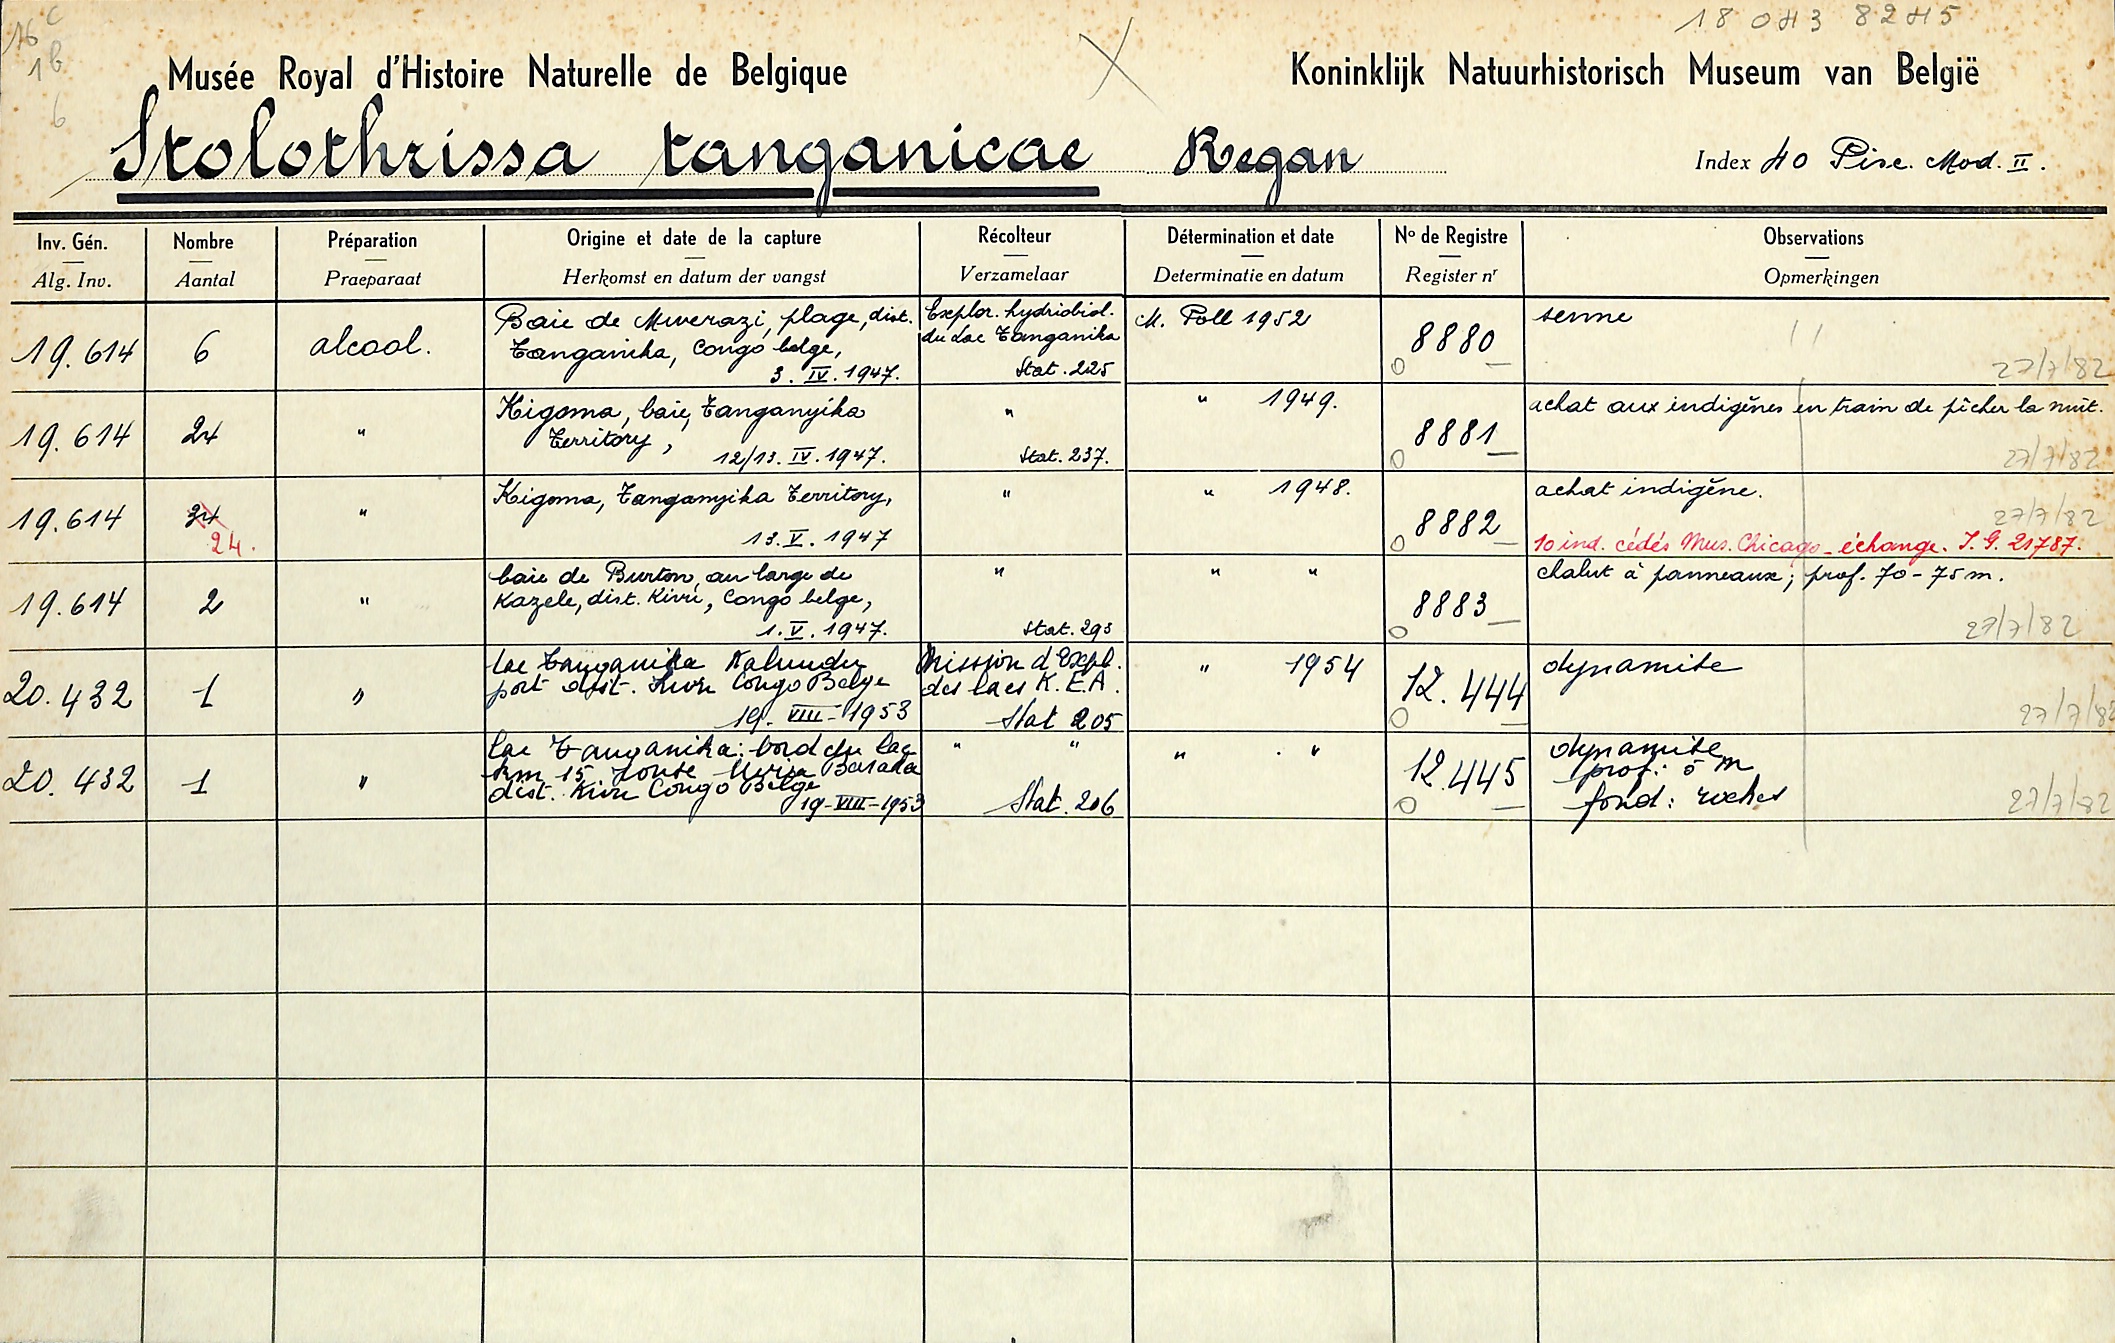 16 c
1 b
6
18 043 8245
Musée Royal d'Histoire Naturelle de Belgique
Koninklijk Natuurhistorisch Museum van België
Stolothrissa tanganicae Regan
Index 40 Pisc. Mod. II.
Inv. Gén. Nombre Préparation Origine et date de la capture Récolteur Détermination et date No de Registre Observations
Alg. Inv. Aantal Praeparaat Herkomst en datum der vangst Verzamelaar Determinatie en datum Register nr Opmerkingen
19.614 6 alcool.
Baie de Mwerazi, plage, dist.
Tanganika, Congo belge,
3. IV. 1947.
Explor. hydriobiol.
du Lac Tanganika
Stat. 225
M. Poll 1952
8880
senne
27/7/82
19.614 24 "
Kigoma, baie, Tanganyika
Territory,
12/13. IV. 1947.
"
Stat. 237.
" 1949.
8881
achat aux indigènes en train de pêcher la nuit.
27/7/82
19.614 34 "
24.
Kigoma, Tanganyika Territory,
13. V. 1947
"
" 1948.
8882
achat indigène.
27/7/82
10 ind. cédés Mus. Chicago - échange. I. G. 21787.
19.614 2 "
baie de Burton, au large de
Kazele, dist. Kivu, Congo belge,
1. V. 1947.
"
Stat. 293
" "
8883
chalut à panneaux; prof. 70-75 m.
27/7/82
20.432 1 "
lac Tanganika Kalundu
port dist. Kivu Congo Belge
19-VIII-1953
Mission d'Expl.
des lacs K.E.A.
Stat 205
" 1954
12.444
dynamite
27/7/82
20.432 1 "
lac Tanganika: bord du lac
km 15 route Uvira Baraka
dist. Kivu Congo Belge
19-VIII-1953
" "
Stat. 206
" "
12.445
dynamite
prof: 5 m
fond: roches
27/7/82